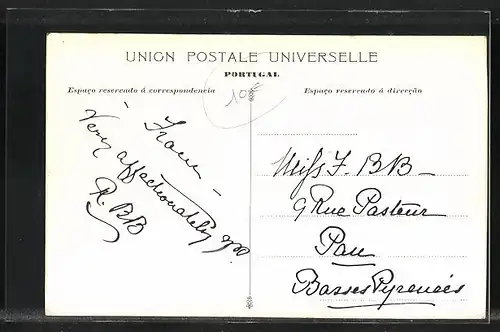 UNION POSTALE UNIVERSELLE
PORTUGAL
Espaço reservado á correspondencia
Espaço reservado á direcção
10
From
Very affectionately
R. BB
Miss F. BB
9 Rue Pasteur
Pau
Basses Pyrenées